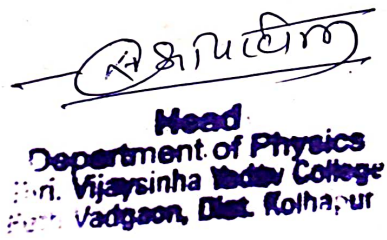 Head
Department of Physics
Shri. Vijaysinha Yadav College
Vadgaon, Dist. Kolhapur